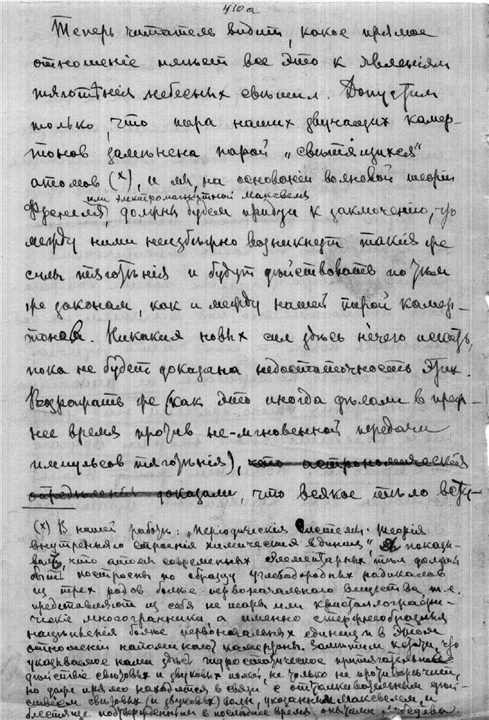 410а
Теперь читатель видит, какое прямое
отношеніе имѣет все это к явленіям
тяготѣнія небесных свѣтил. Допустим
только, что пара наших звучащих камер-
тонов замѣнена парой „свѣтящихся"
атомов (х), и мы, на основаніи волновой теоріи
или электромагнитной Максвеля
Френеля, должны будем прийти к заключению, что
между ними неизбѣжно возникнут такія же
силы тяготѣнія и будут дѣйствовать по тѣм
же законам, как и между нашей парой камер-
тонов. Никаких новых сил здѣсь нечего искать,
пока не будет доказана недостаточность этих.
Возражать же (как это иногда дѣлали в преж-
нее время против не-мгновенной передачи
импульсов тяготѣнія), что астрономическія
опредѣленія доказали, что всякое тѣло
(х) В нашей работѣ: „Періодическія системы: теорія
внутренняго строенія химических единиц" показы-
вать, что атомы современных элементарных тѣл должны
быть построены по образцу углеводородных радикалов
из трех родов болѣе первоначальнаго вещества т.е.
представляют из себя не шары или кристаллографи-
ческіе многогранники, а именно стереообразныя
нацѣпленія болѣе первоначальных единиц и в этом
отношеніи напоминают камертоны. Замѣтим кстати, что
указываемое нами здѣсь гидростатическое притягательное
дѣйствіе свѣтовых и звуковых волн, не только не противорѣчит,
но даже прямо находится в связи с отталкивательным дѣй-
ствием свѣтовых (и звуковых) волн, указанным Максвелем, и
блестяще подтвержденным в послѣднее время опытами Лебедева